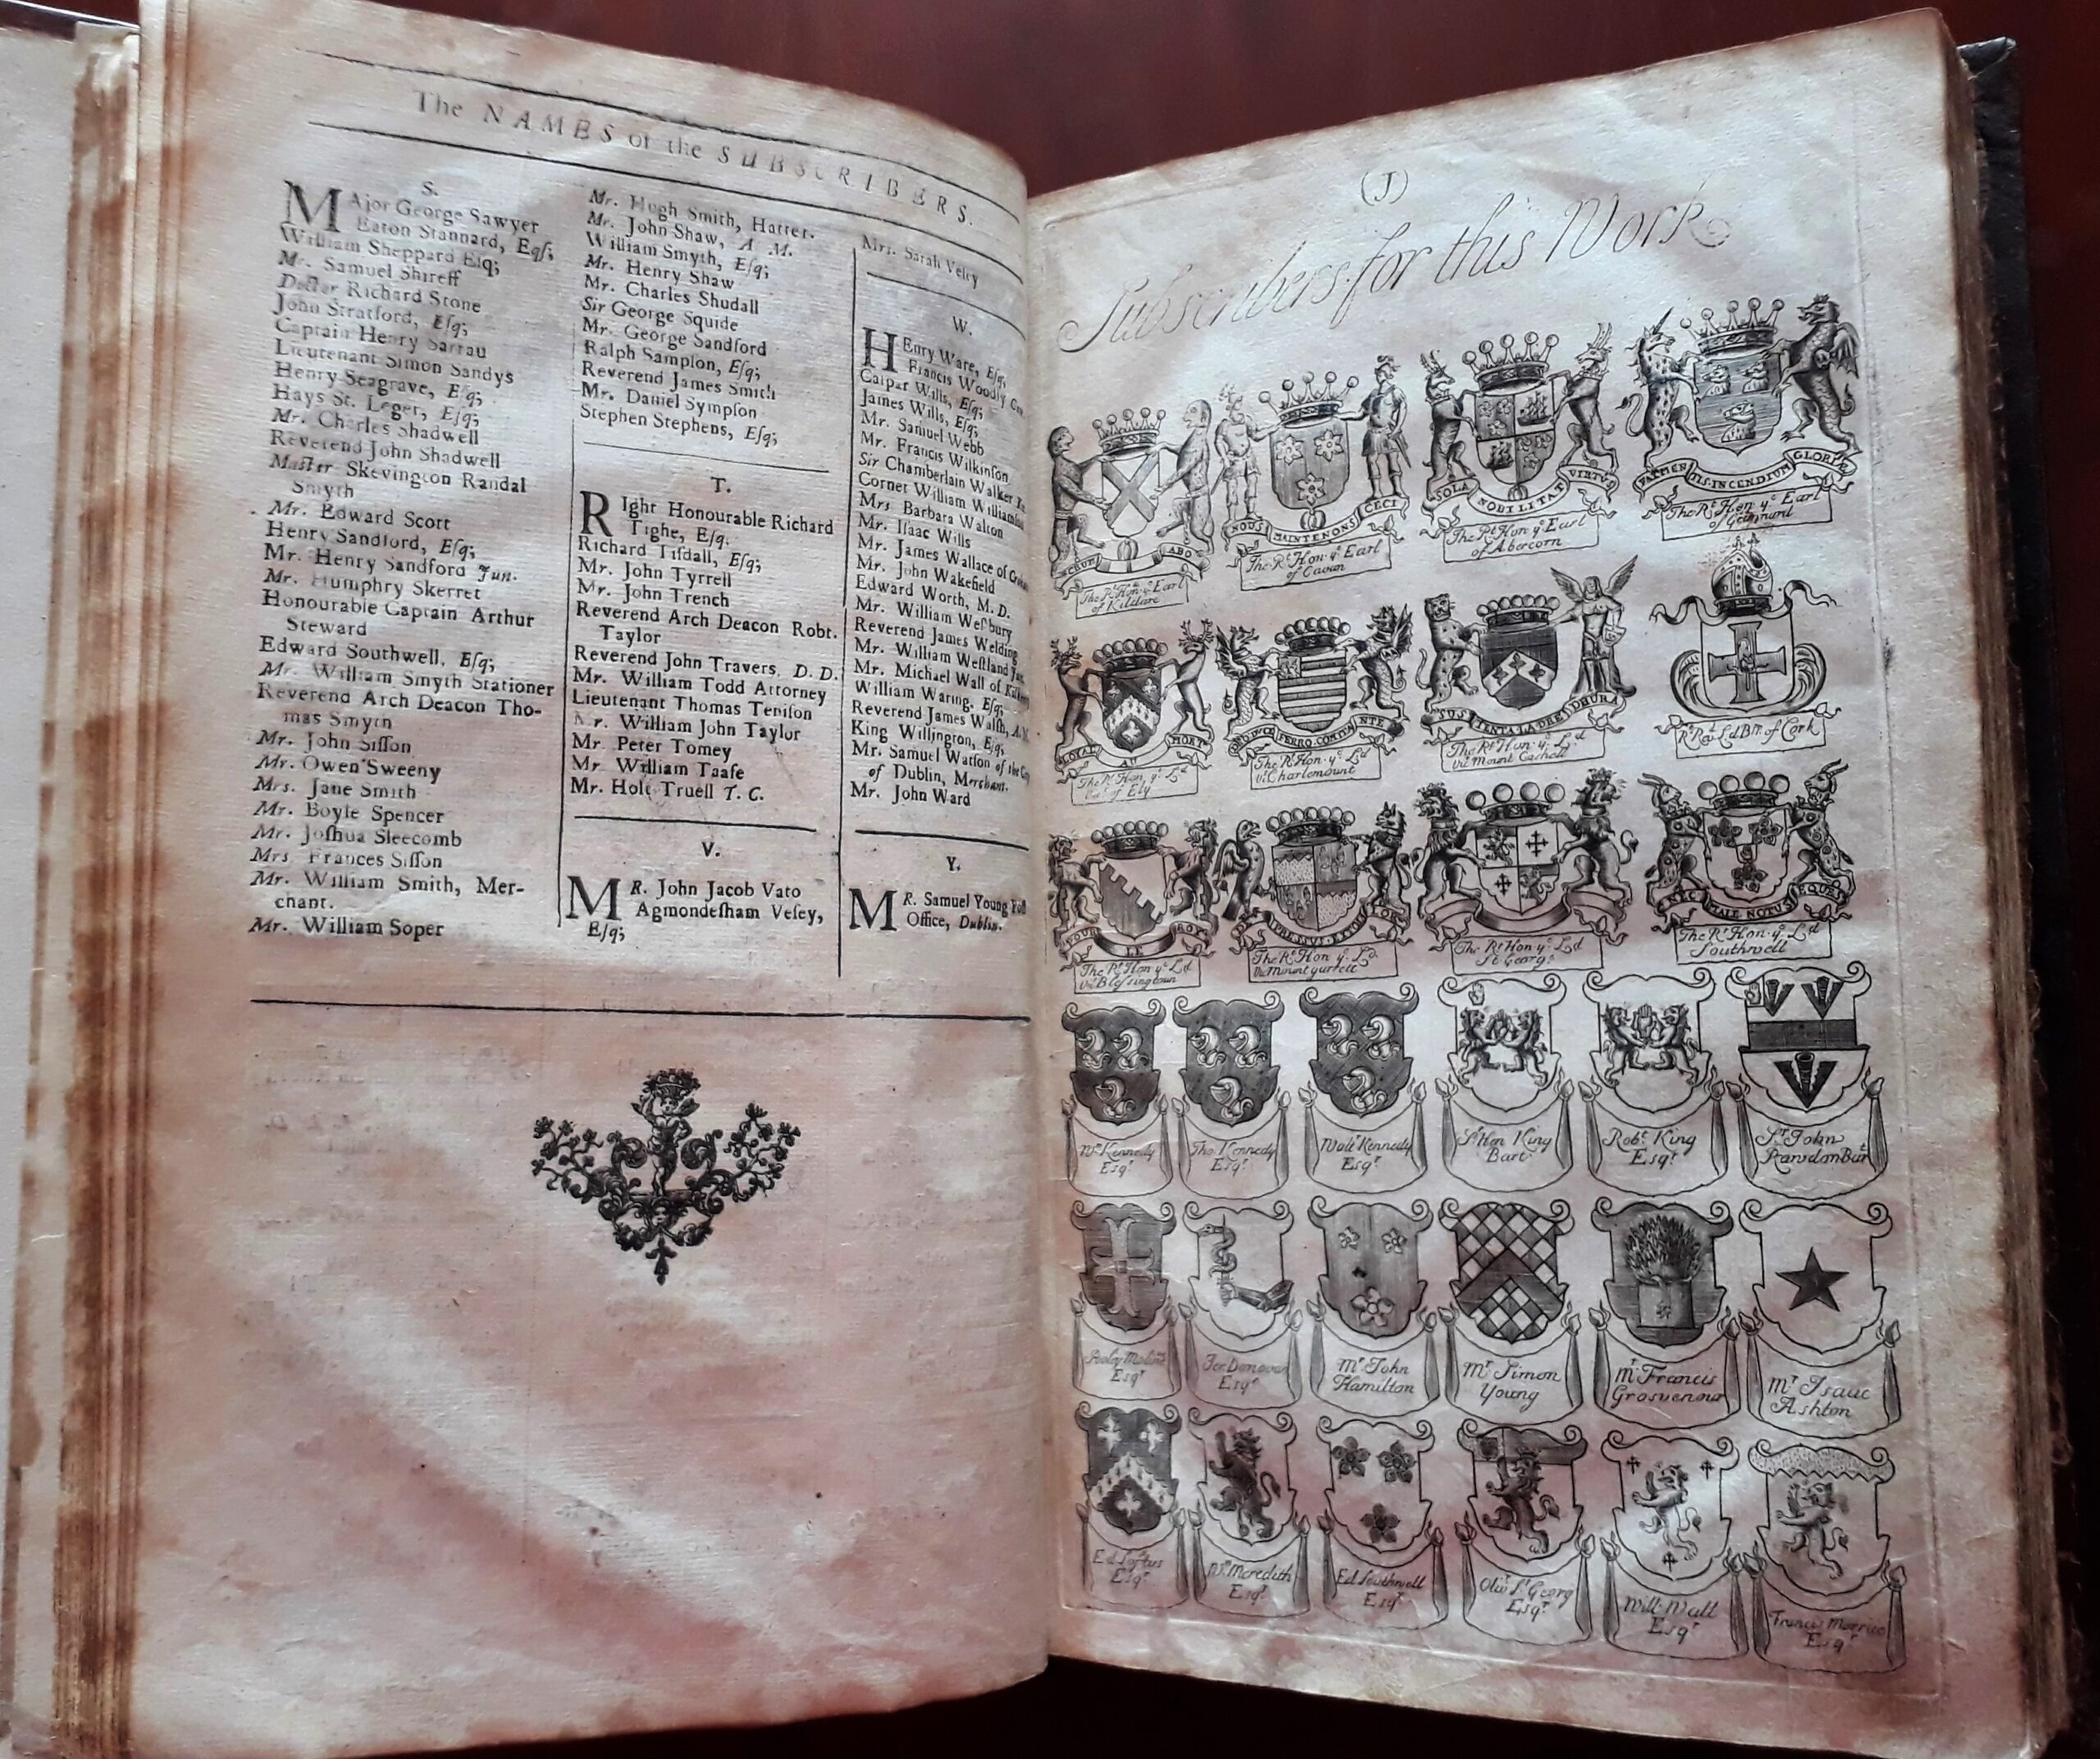 The NAMES of the SUBSCRIBERS.
S.
MAjor George Sawyer
Eaton Stannard, Eqſ;
William Sheppard Eſq;
Mr. Samuel Shireff
Doctor Richard Stone
John Stratford, Eſq;
Captain Henry Sarrau
Lieutenant Simon Sandys
Henry Seagrave, Eſq;
Hays St. Leger, Eſq;
Mr. Charles Shadwell
Reverend John Shadwell
Maſter Skevington Randal
Smyth
Mr. Edward Scott
Henry Sandford, Eſq;
Mr. Henry Sandford Jun.
Mr. Humphry Skerret
Honourable Captain Arthur
Steward
Edward Southwell, Eſq;
Mr. William Smyth Stationer
Reverend Arch Deacon Tho-
mas Smyth
Mr. John Siſſon
Mr. Owen Sweeny
Mrs. Jane Smith
Mr. Boyle Spencer
Mr. Joſhua Sleecomb
Mrs Frances Siſſon
Mr. William Smith, Mer-
chant.
Mr. William Soper
Mr. Hugh Smith, Hatter.
Mr. John Shaw, A M.
William Smyth, Eſq;
Mr. Henry Shaw
Mr. Charles Shudall
Sir George Squide
Mr. George Sandford
Ralph Sampſon, Eſq;
Reverend James Smith
Mr. Daniel Sympſon
Stephen Stephens, Eſq;
T.
RIght Honourable Richard
Tighe, Eſq.
Richard Tiſdall, Eſq;
Mr. John Tyrrell
Mr. John Trench
Reverend Arch Deacon Robt.
Taylor
Reverend John Travers, D. D.
Mr. William Todd Attorney
Lieutenant Thomas Teniſon
Mr. William John Taylor
Mr. Peter Tomey
Mr. William Taafe
Mr. Holt Truell T. C.
V.
MR. John Jacob Vato
Agmondeſham Veſey,
Eſq;
Mrs. Sarah Veſey
W.
HEnry Ware, Eſq;
Francis Woodly
Caſpar Wills, Eſq;
James Wills, Eſq;
Mr. Samuel Webb
Mr. Francis Wilkinſon
Sir Chamberlain Walker
Cornet William
Mrs Barbara Walton
Mr. Iſaac Wills
Mr. James Wallace of
Mr. John Wakefield
Edward Worth, M. D.
Mr. William Weſbury
Reverend James Welding
Mr. William Weſtland
Mr. Michael Wall of
William Waring, Eſq;
Reverend James Walſh,
King Willington, Eſq;
Mr. Samuel Watſon of the
of Dublin, Merchant.
Mr. John Ward
Y.
MR. Samuel Young
Office, Dublin.
(J)
Subscribers for this Work
ABO
The Rt Hon ye Earl
of Kildare
NOUS MAINTENONS CECI
The Rt Hon ye Earl
of Cavan
SOLA NOBILITAT VIRTUS
The Rt Hon ye Earl
of Abercorn
INCENDIUM GLORIÆ
The Rt Hon ye Earl
LOYAL AU MORT
The Rt Hon ye Ld
of Ely
FERRO
The Rt Hon ye Ld
Vi Charlemount
SUSTENTA LA DREDHURA
The Rt Hon ye Ld
Vit Mount Cashell
Rt Revd Ld Bp of Cork
POUR LE ROY
The Rt Hon ye Ld
Vit Blessingtown
The Rt Hon ye Ld
The Rt Hon ye Ld
St George
NEC MALE NOTUS EQUES
The Rt Hon ye Ld
Southwell
Wm Kennedy
Esqr
Tho Kennedy
Esqr
Walt Kennedy
Esqr
Sr Hen King
Bart
Robt King
Esqr
Sr John
Esqr
Jer Donovan
Esqr
Mr John
Hamilton
Mr Simon
Young
Mr Francis
Grosvenour
Mr Isaac
Ashton
Ed Loftus
Esqr
Wm Meredith
Esqr
Ed Southwell
Esqr
Oliv St Georg
Esqr
Will Wall
Esqr
Francis
Esqr